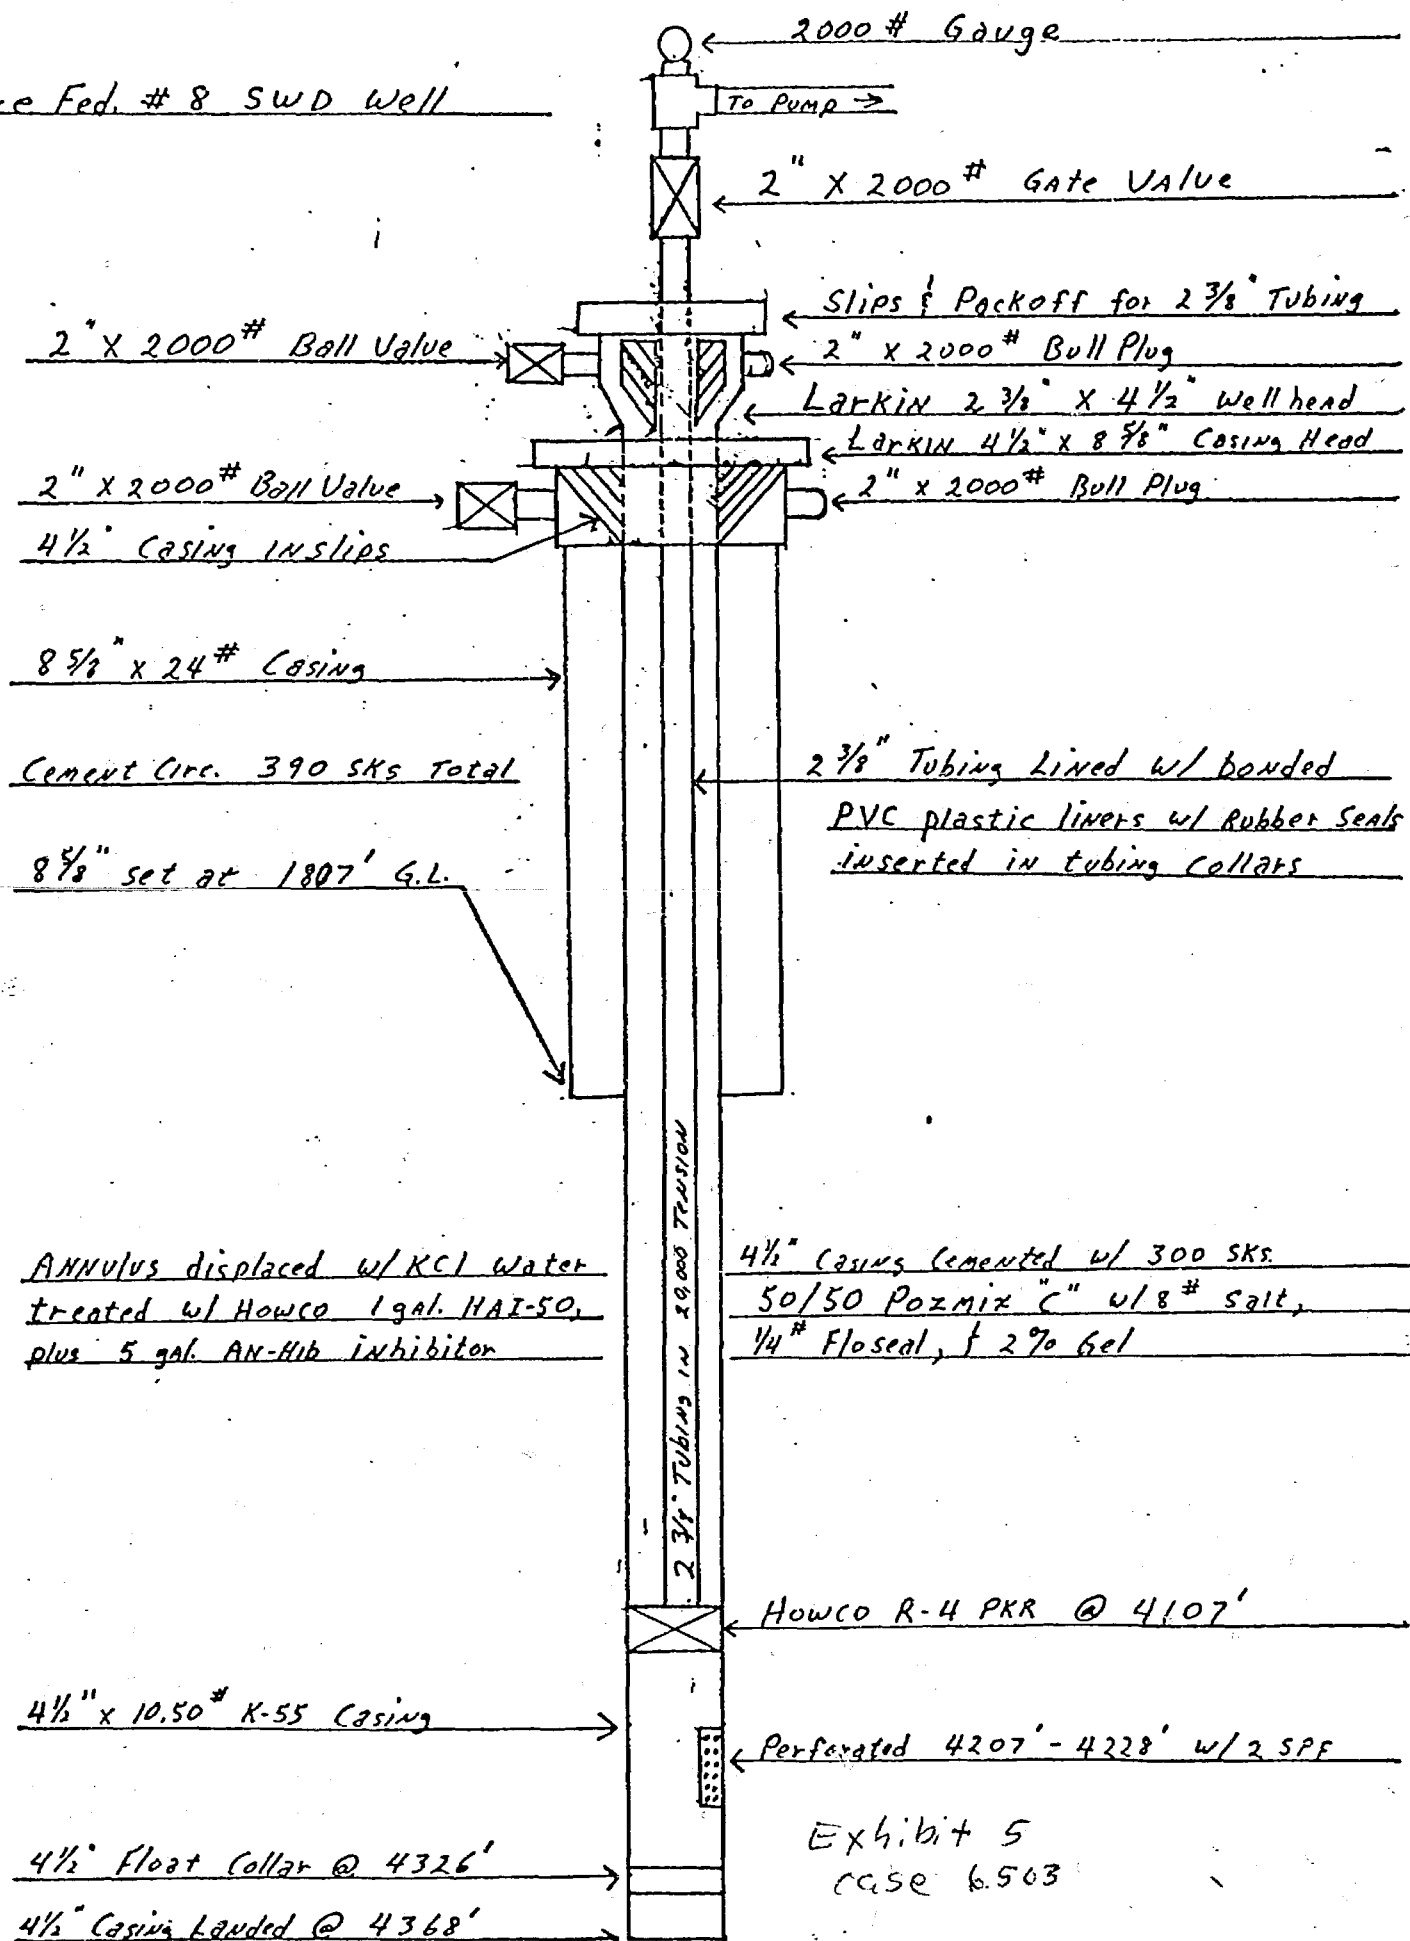 2000 # Gauge
e Fed. # 8 SWD Well
To Pump →
2" X 2000 # GAte VAlve
Slips & Packoff for 2 3/8" Tubing
2" X 2000 # Ball Valve
2" X 2000 # Bull Plug
LarKiN 2 3/8" X 4 1/2" Wellhead
LarKiN 4 1/2" X 8 5/8" Casing Head
2" X 2000 # Ball Valve
2" X 2000 # Bull Plug
4 1/2" Casing in slips
8 5/8" X 24 # Casing
Cement Circ. 390 SKs Total
2 3/8" Tubing Lined w/ bonded
PVC plastic liners w/ Rubber Seals
inserted in tubing Collars
8 5/8" set at 1807' G.L.
2 3/8" Tubing in 20,000 Tension
ANNulus displaced w/ KCl Water
treated w/ Howco 1 gal. HAI-50,
plus 5 gal. AN-Hib inhibitor
4 1/2" Casing Cemented w/ 300 SKs.
50/50 Pozmix "C" w/ 8 # Salt,
1/4 # Floseal, & 2% Gel
Howco R-4 PKR @ 4107'
4 1/2" X 10.50 # K-55 Casing
Perforated 4207' - 4228' w/ 2 SPF
Exhibit 5
case 6503
4 1/2" Float Collar @ 4326'
4 1/2" Casing Landed @ 4368'